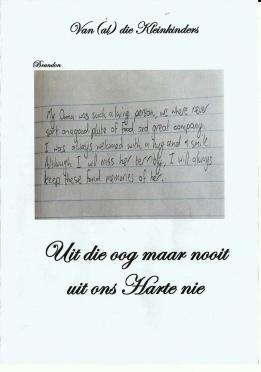 Van (al) die Kleinkinders
Brandon
My Ouma was such a loving person, we where never
short on a good plate of food and great company.
I was always welcomed with a hug and a smile.
Although I will miss her terribly, I will always
keep these fond memories of her.
Uit die oog maar nooit
uit ons Harte nie